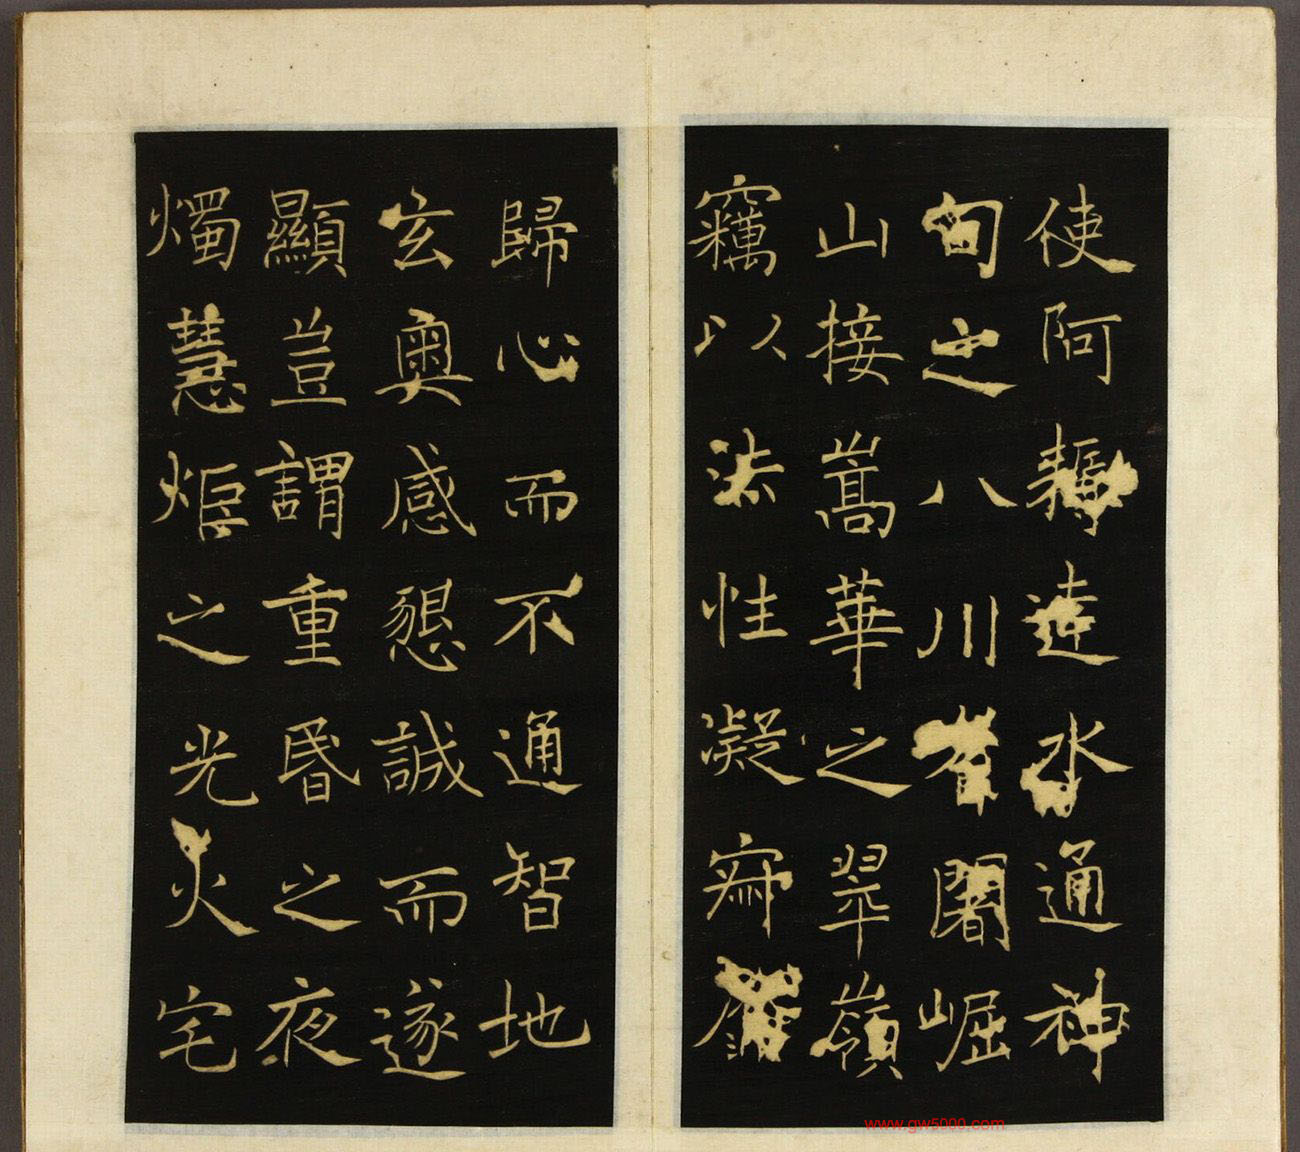 使阿耨達水通神
甸之八川耆闍崛
山接嵩華之翠嶺
竊以法性凝寂靡
歸心而不通智地
玄奧感懇誠而遂
顯豈謂重昏之夜
燭慧炬之光火宅
www.gw5000.com